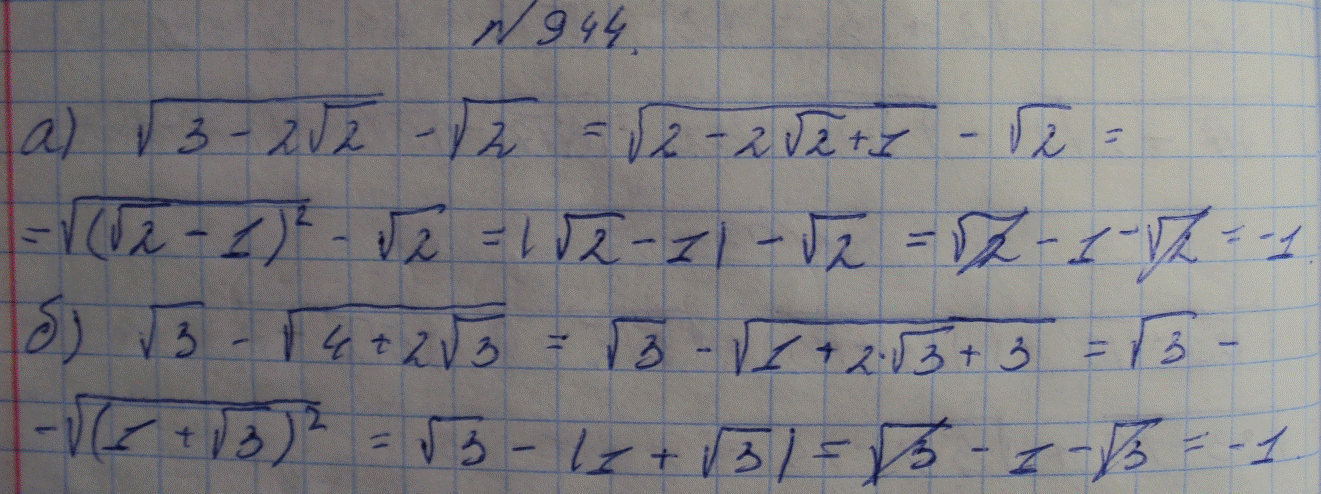 №944.
а) √(3 - 2√2) - √2 = √(2 - 2√2 + 1) - √2 =
= √((√2 - 1)²) - √2 = |√2 - 1| - √2 = √2 - 1 - √2 = -1.
б) √3 - √(4 + 2√3) = √3 - √(1 + 2·√3 + 3) = √3 -
- √((1 + √3)²) = √3 - |1 + √3| = √3 - 1 - √3 = -1